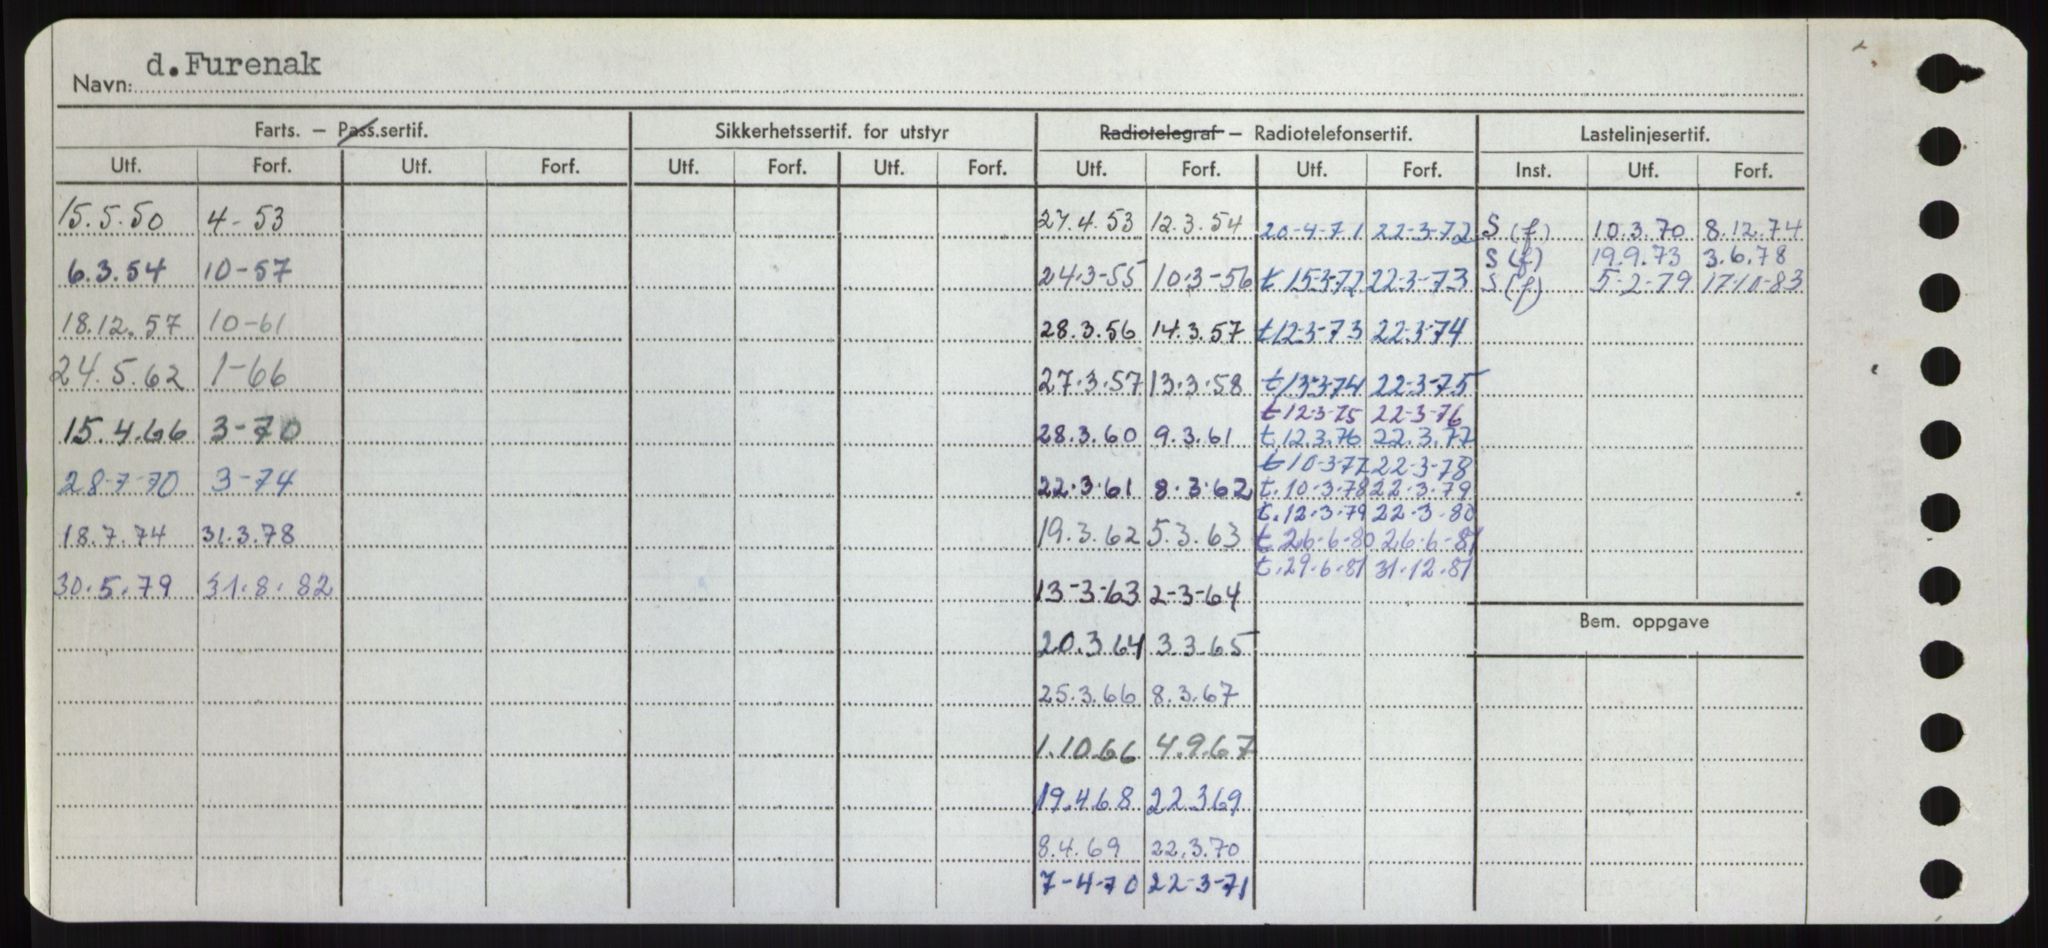 Navn: d.Furenak
Farts. – Pass.sertif. Sikkerhetssertif. for utstyr Radiotelegraf – Radiotelefonsertif. Lastelinjesertif.
Utf. Forf. Utf. Forf. Utf. Forf. Utf. Forf. Utf. Forf. Utf. Forf. Inst. Utf. Forf.
15.5.50 4-53 27.4.53 12.3.54 20-4-71 22-3-72 S (f) 10.3.70 8.12.74
S (f) 19.9.73 3.6.78
6.3.54 10-57 24.3-55 10.3-56 t 15-3-72 22-3-73 S (f) 5-2-79 17-10-83
18.12.57 10-61 28.3.56 14.3.57 t 12-3-73 22-3-74
24.5.62 1-66 27.3.57 13.3.58 t 13-3-74 22-3-75
t 12-3-75 22-3-76
15.4.66 3-70 28.3.60 9.3.61 t. 12.3.76 22.3.77
t 10-3-77 22-3-78
28-7-70 3-74 22.3.61 8.3.62 t. 10.3.78 22.3.79
t. 12-3-79 22-3-80
18.7.74 31.3.78 19.3.62 5.3.63 t 26-6-80 26-6-81
t. 29.6.81 31.12.81
30.5.79 31.8.82 13-3-63 2-3-64
Bem. oppgave
20.3.64 3.3.65
25.3.66 8.3.67
1.10.66 4.9.67
19.4.68 22.3.69
8.4.69 22.3.70
7-4-70 22-3-71